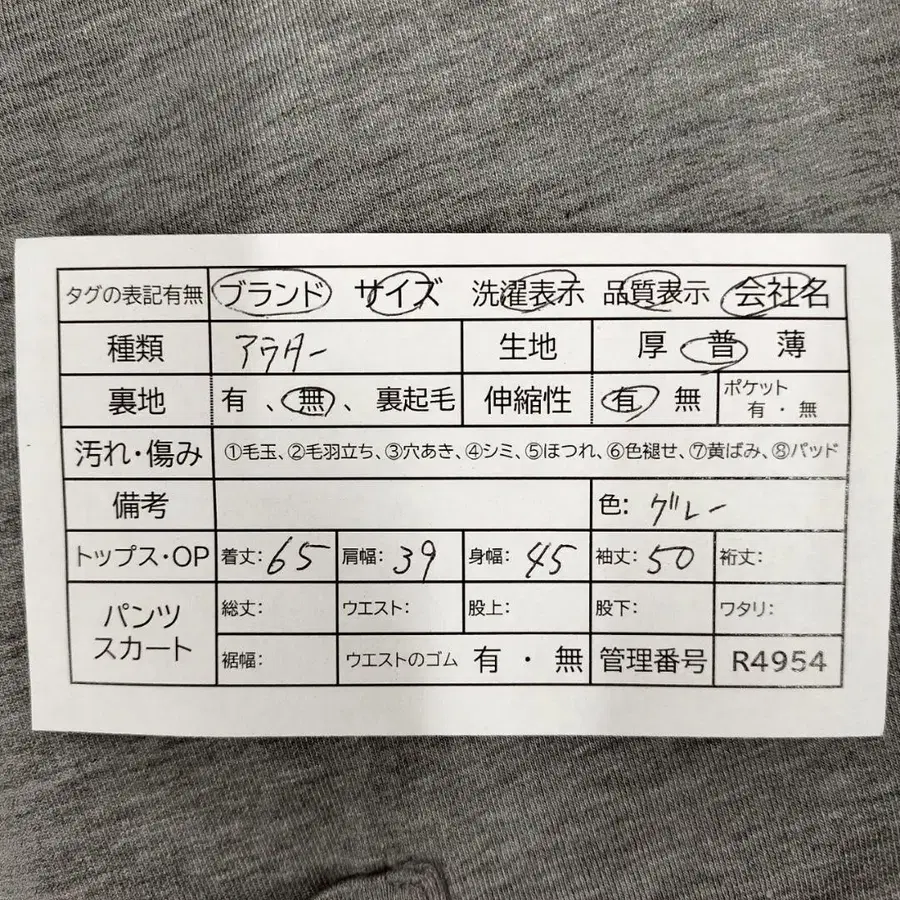 タグの表記有無 ブランド サイズ 洗濯表示 品質表示 会社名
種類 アウター 生地 厚 普 薄
裏地 有 、無、裏起毛 伸縮性 有 無 ポケット 有・無
汚れ・傷み ①毛玉、②毛羽立ち、③穴あき、④シミ、⑤ほつれ、⑥色褪せ、⑦黄ばみ、⑧パッド
備考 色: グレー
トップス・OP 着丈: 65 肩幅: 39 身幅: 45 袖丈: 50 裄丈:
パンツ スカート 総丈: ウエスト: 股上: 股下: ワタリ:
裾幅: ウエストのゴム 有・無 管理番号 R4954